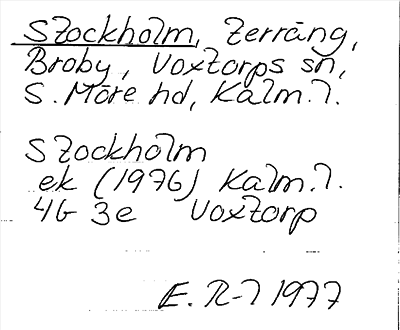 Stockholm, terräng,
Broby, Voxtorps sn,
S. Möre hd, Kalm. l.
Stockholm
ek (1976) Kalm. l.
4G 3e Voxtorp
E. R-l 1977